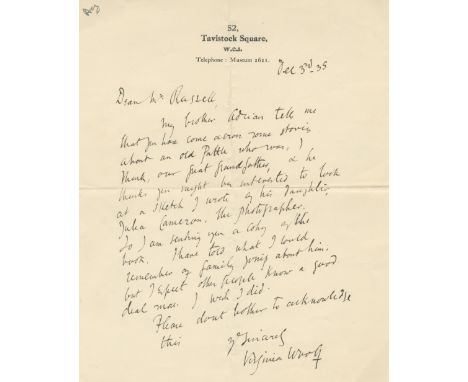 52,
Tavistock Square,
W.C.1.
Telephone: Museum 2621.
Dec 3rd 35
Dear Mr Russell,
My brother Adrian tells me
that you have come across some stories
about an old Pattle who was, I
think, our great grandfather, & he
thinks you might be interested to look
at a sketch I wrote of his daughter,
Julia Cameron, the photographer.
So I am sending you a copy of the
book. I have told what I could
remember of family gossip about him,
but I expect other people know a good
deal more. I wish I did.
Please dont bother to acknowledge
this
yr sincerely
Virginia Woolf